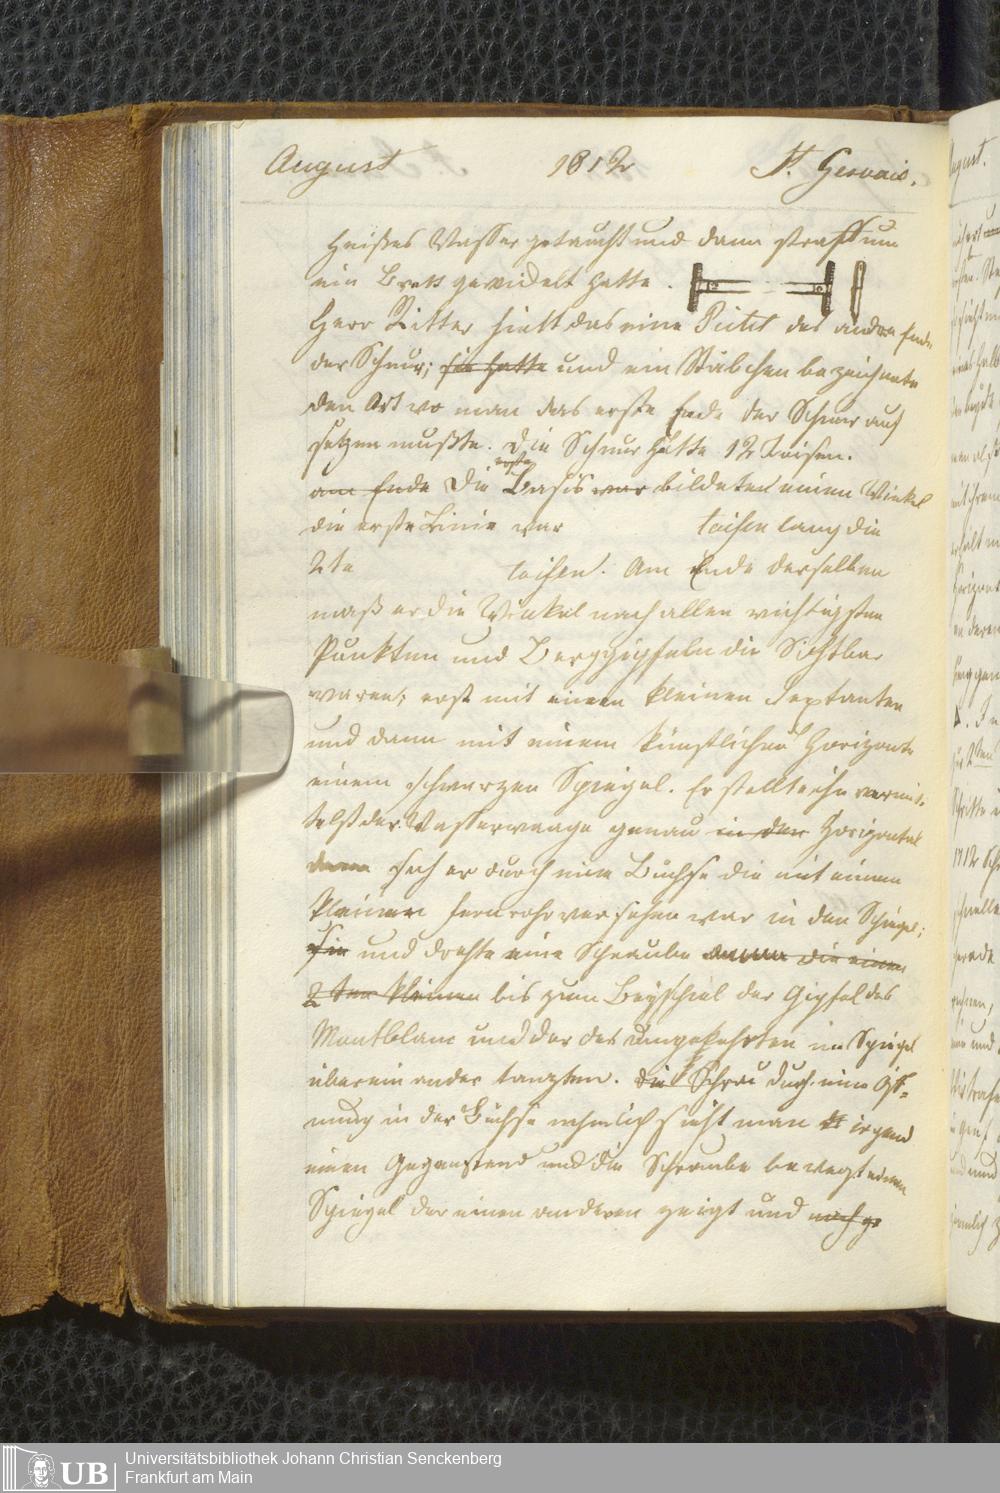 August 1812 St. Gervais.
heißes Wasser getaucht und dann straff um
ein Brett gewickelt hatte.
Herr Ritter hielt das eine Piket das andre Ende
der Schnur; sie hatte und ein Stäbchen bezeichnete
den Ort wo man das erste Ende der Schnur auf
setzen mußte. Die Schnur hatte 12 Toisen.
am Ende Die erste Basis war bildeten einen Winkel
die erste Linie war toisen lang die
2te toisen. Am Ende derselben
maß er die Winkel nach allen wichtigsten
Punkten und Berggipfeln die Sichtbar
waren; erst mit einem kleinen Sextanten
und dann mit einem künstlichen Horizonte
einem schwarzen Spiegel. Er stellte ihn vermit-
telst der Wasserwaage genau in den Horizontal
dann sah er durch eine Büchse die mit einem
kleinen Fernrohr versehen war in den Spiegel;
Sie und drehte eine Schraube die einen
2ten kleinen bis zum Beyspiel der Gipfel des
Montblanc und der des umgekehrten im Spiegel
über einander tanzten. die Schrau durch eine Öff-
nung in der Büchse nehmlich sieht man irgend
einen Gegenstand und die Schraube bewegt einen
Spiegel der einen anderen zeigt und
August.
1712
UB
Universitätsbibliothek Johann Christian Senckenberg
Frankfurt am Main